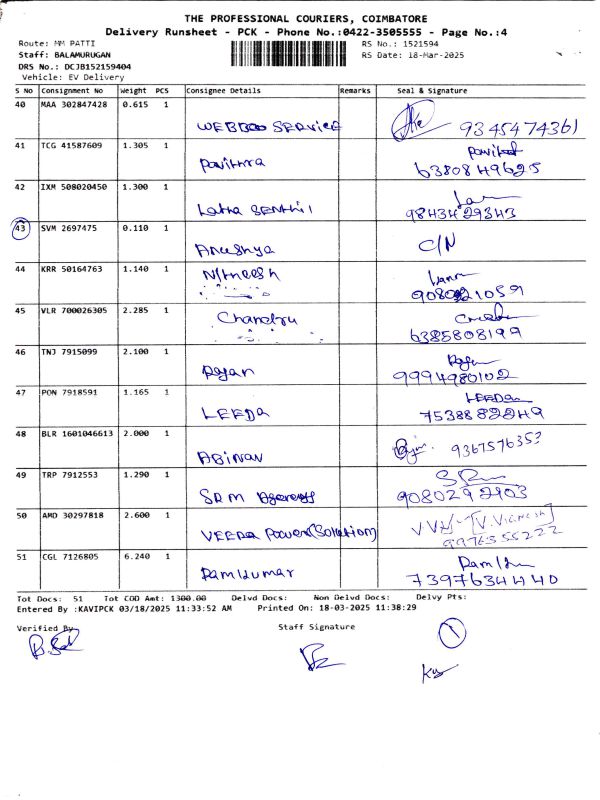 THE PROFESSIONAL COURIERS, COIMBATORE
Delivery Runsheet - PCK - Phone No.:0422-3505555 - Page No.:4
Route: MM PATTI RS No.: 1521594
Staff: BALAMURUGAN RS Date: 18-Mar-2025
DRS No.: DCJB152159404
Vehicle: EV Delivery
S No Consignment No Weight PCS Consignee Details Remarks Seal & Signature
40 MAA 302847428 0.615 1
SERVICE 9345474361
41 TCG 41587609 1.305 1
Pavithra 6380849625
42 IXM 508020450 1.300 1
Latha SENTHIL 9843429343
43 SVM 2697475 0.110 1
Anushya C/N
44 KRR 50164763 1.140 1
Nitheesh
45 VLR 700026305 2.285 1
Chandru
6385808199
46 TNJ 7915099 2.100 1
Rajan 9994980102
47 PON 7918591 1.165 1
LEEDA
LEEDA 7538882249
48 BLR 1601046613 2.000 1
ABINAN 9367576353
49 TRP 7912553 1.290 1
SRM 9080292903
50 AMD 30297818 2.600 1
V.VIGNESH
VEEDA Power(Solution) 9976355222
51 CGL 7126805 6.240 1
Ramkumar 7397634440
Tot Docs: 51 Tot COD Amt: 1300.00 Delvd Docs: Non Delvd Docs: Delvy Pts:
Entered By :KAVIPCK 03/18/2025 11:33:52 AM Printed On: 18-03-2025 11:38:29
Verified By Staff Signature
1